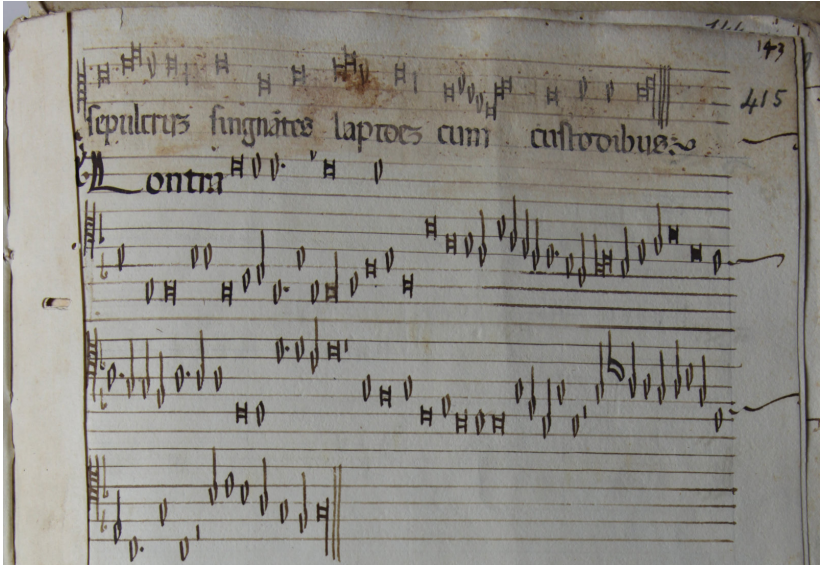 143
415
sepulcrus singnātes lapides cum custodibus
Contra